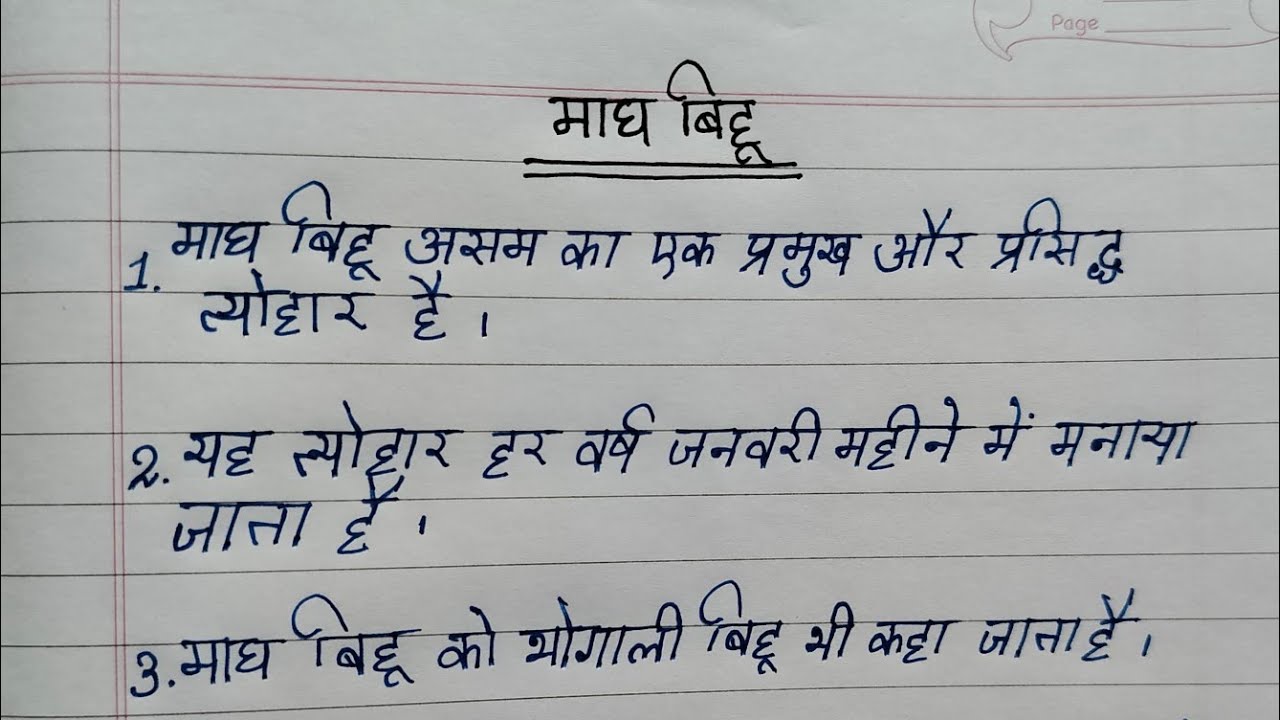 Page
माघ बिहू
1. माघ बिहू असम का एक प्रमुख और प्रसिद्ध
त्योहार है ।
2. यह त्योहार हर वर्ष जनवरी महीने में मनाया
जाता है ।
3. माघ बिहू को भोगाली बिहू भी कहा जाता है ।